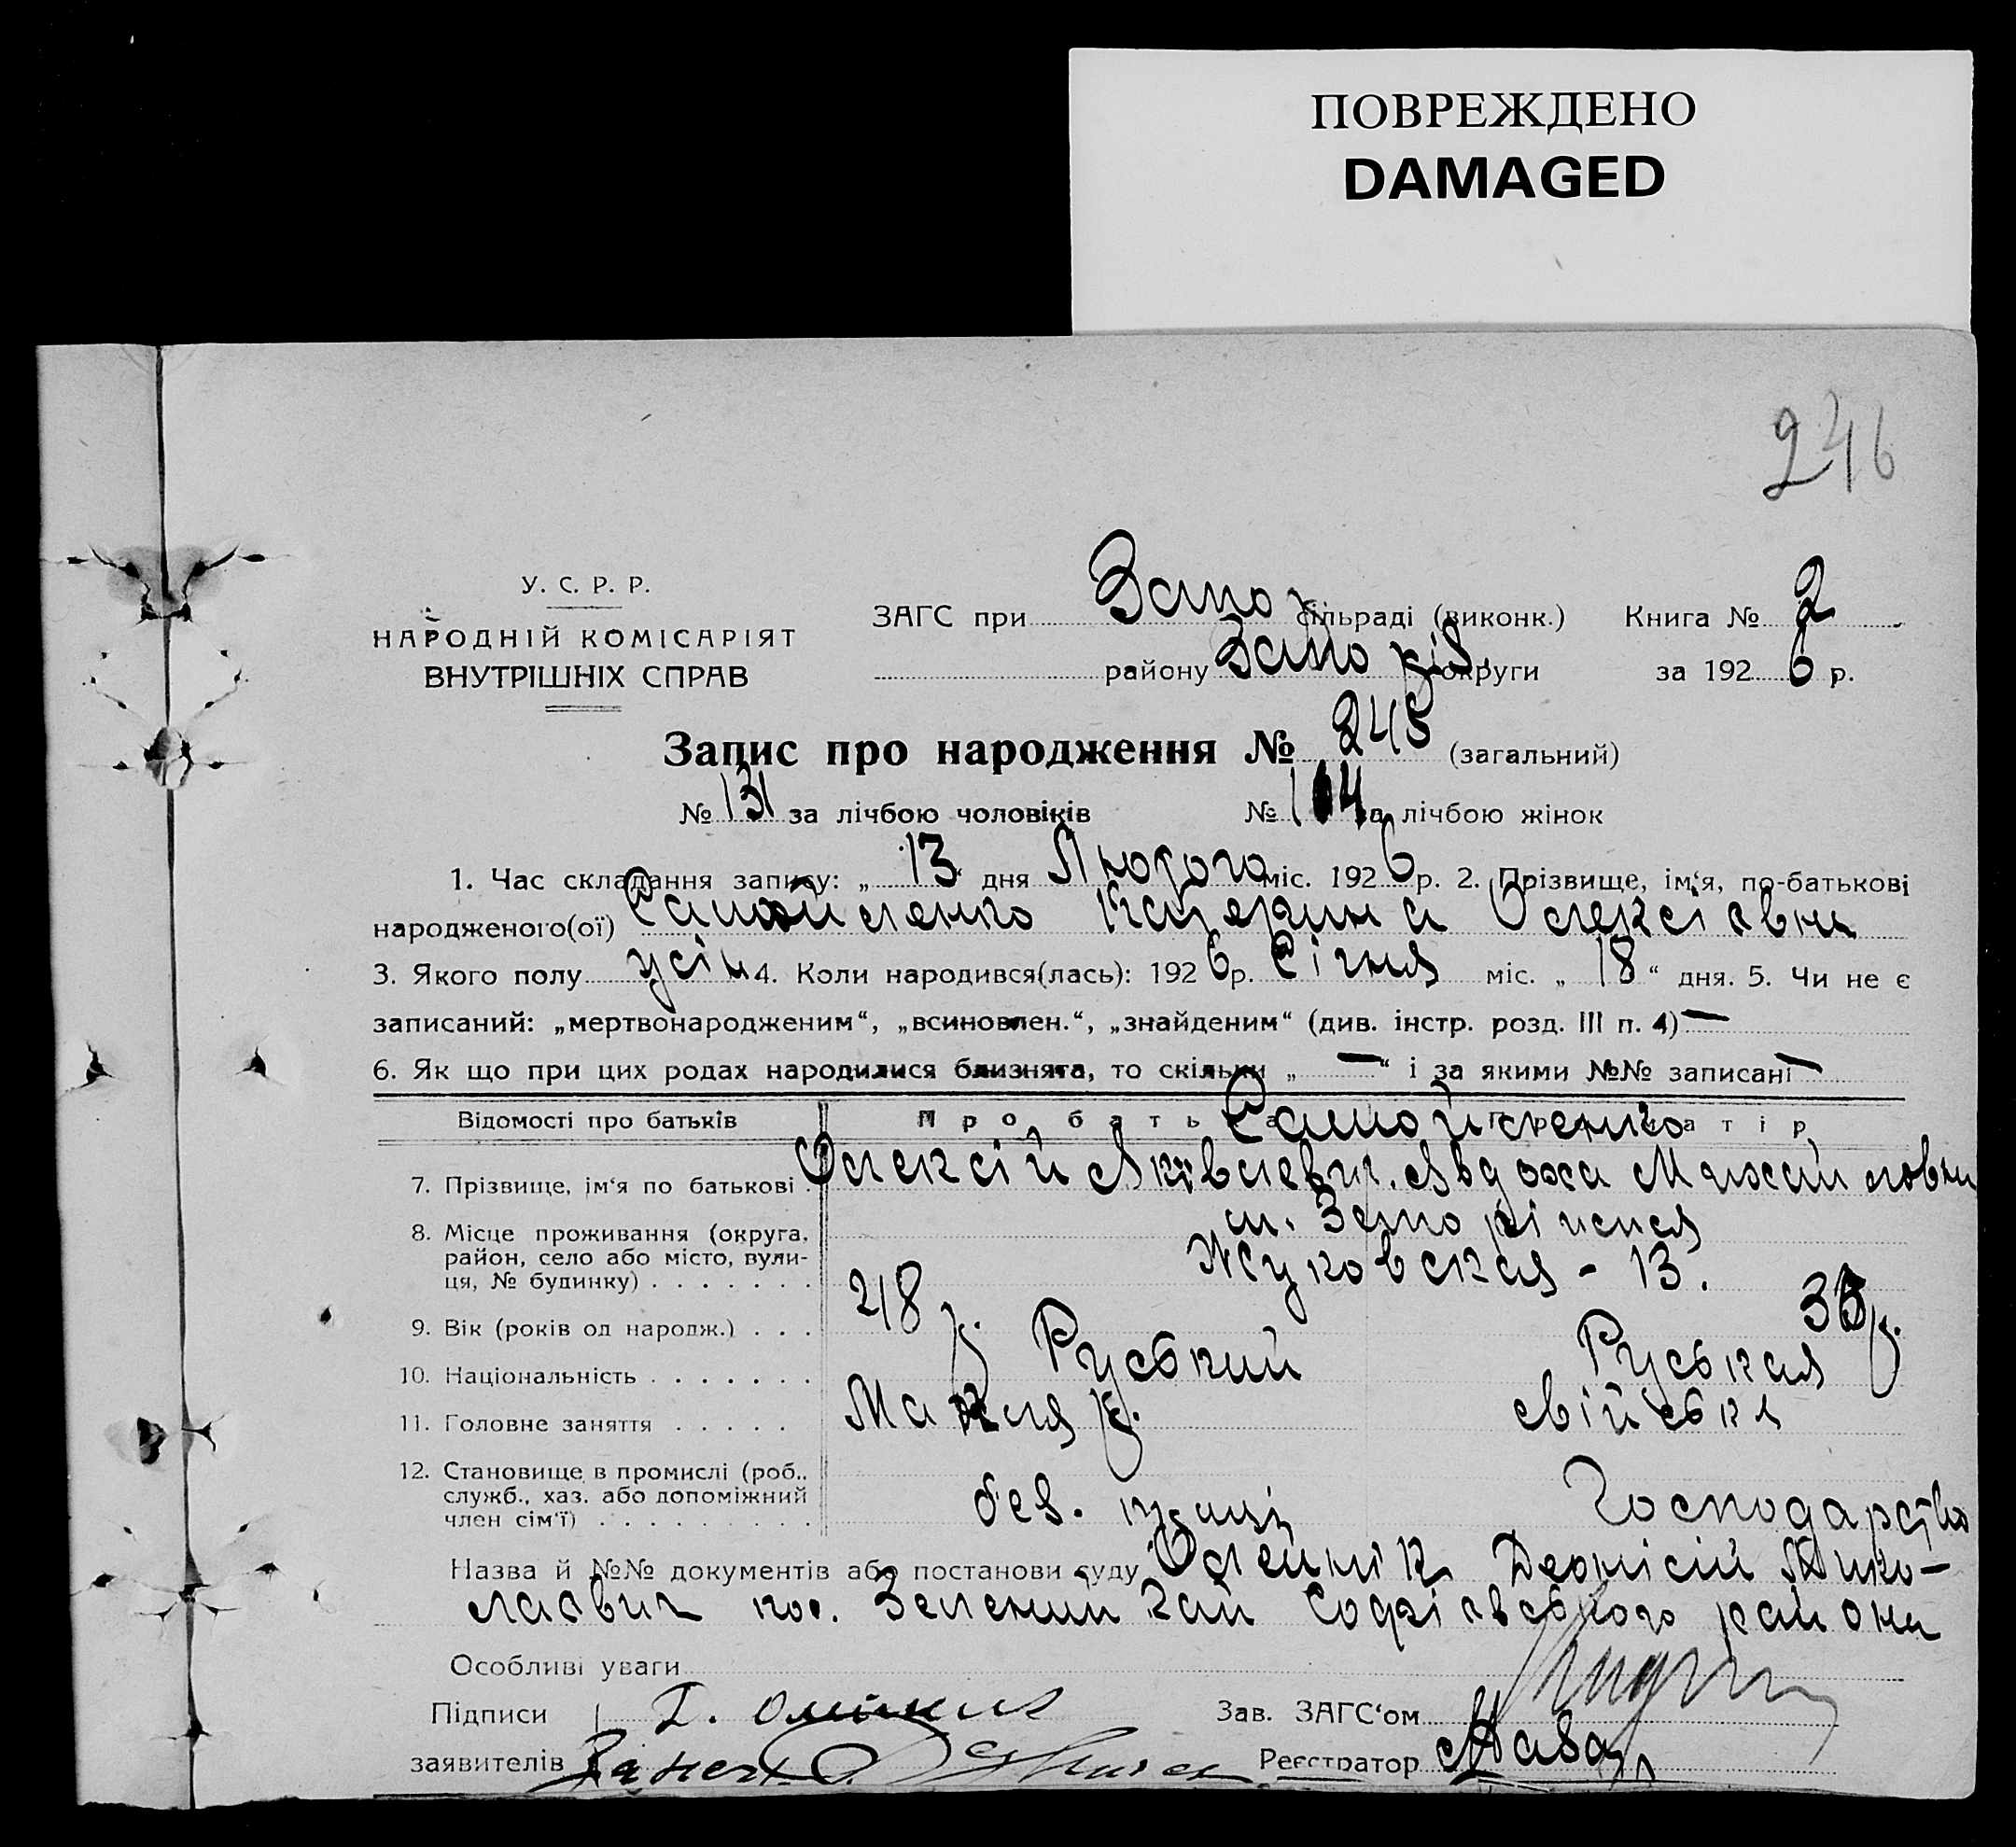 ПОВРЕЖДЕНО
DAMAGED
246
У. С. Р. Р.
НАРОДНІЙ КОМІСАРІЯТ
ВНУТРІШНІХ СПРАВ
ЗАГС при Запор сільраді (виконк.) Книга № 2
району Запоріз. округи за 1926 р.
Запис про народження № 245 (загальний)
№ 131 за лічбою чоловіків № 114 за лічбою жінок
1. Час складання запису: „ 13 “ дня Лютого міс. 1926 р. 2. Прізвище, ім‘я, по-батькові
народженого(ої) Самойленко Катерина Олексієвна
3. Якого полу жін 4. Коли народився(лась): 1926 р. Січня міс. „ 18 “ дня. 5. Чи не є
записаний: „мертвонародженим“, „всиновлен.“, „знайденим“ (див. інстр. розд. III п. 4) —
6. Як що при цих родах народилися близнята, то скільки „ — “ і за якими №№ записані —
Відомості про батьків Про батька Про матір
Самойленко
7. Прізвище, ім‘я по батькові . Олексій Яківлевич. Явдоха Михайловна
8. Місце проживання (округа, район, село або місто, вулиця, № будинку) . . . . . . . м. Запоріжжя
Жуковская - 13.
9. Вік (років од народж.) . . . 48 р. 35 р.
10. Національність . . . . . . . Руський Руськая
11. Головне заняття . . . . . Маляр. свійська
12. Становище в промислі (роб., служб., хаз. або допоміжний член сім‘ї) . . . . . . . . . без. праці Господарство
Назва й №№ документів або постанови суду Олейнік Деонісій Мико-
лаєвич пос. Зелений Гай Софієвського района
Особливі уваги
Підписи Зав. ЗАГС‘ом
заявителів Реєстратор